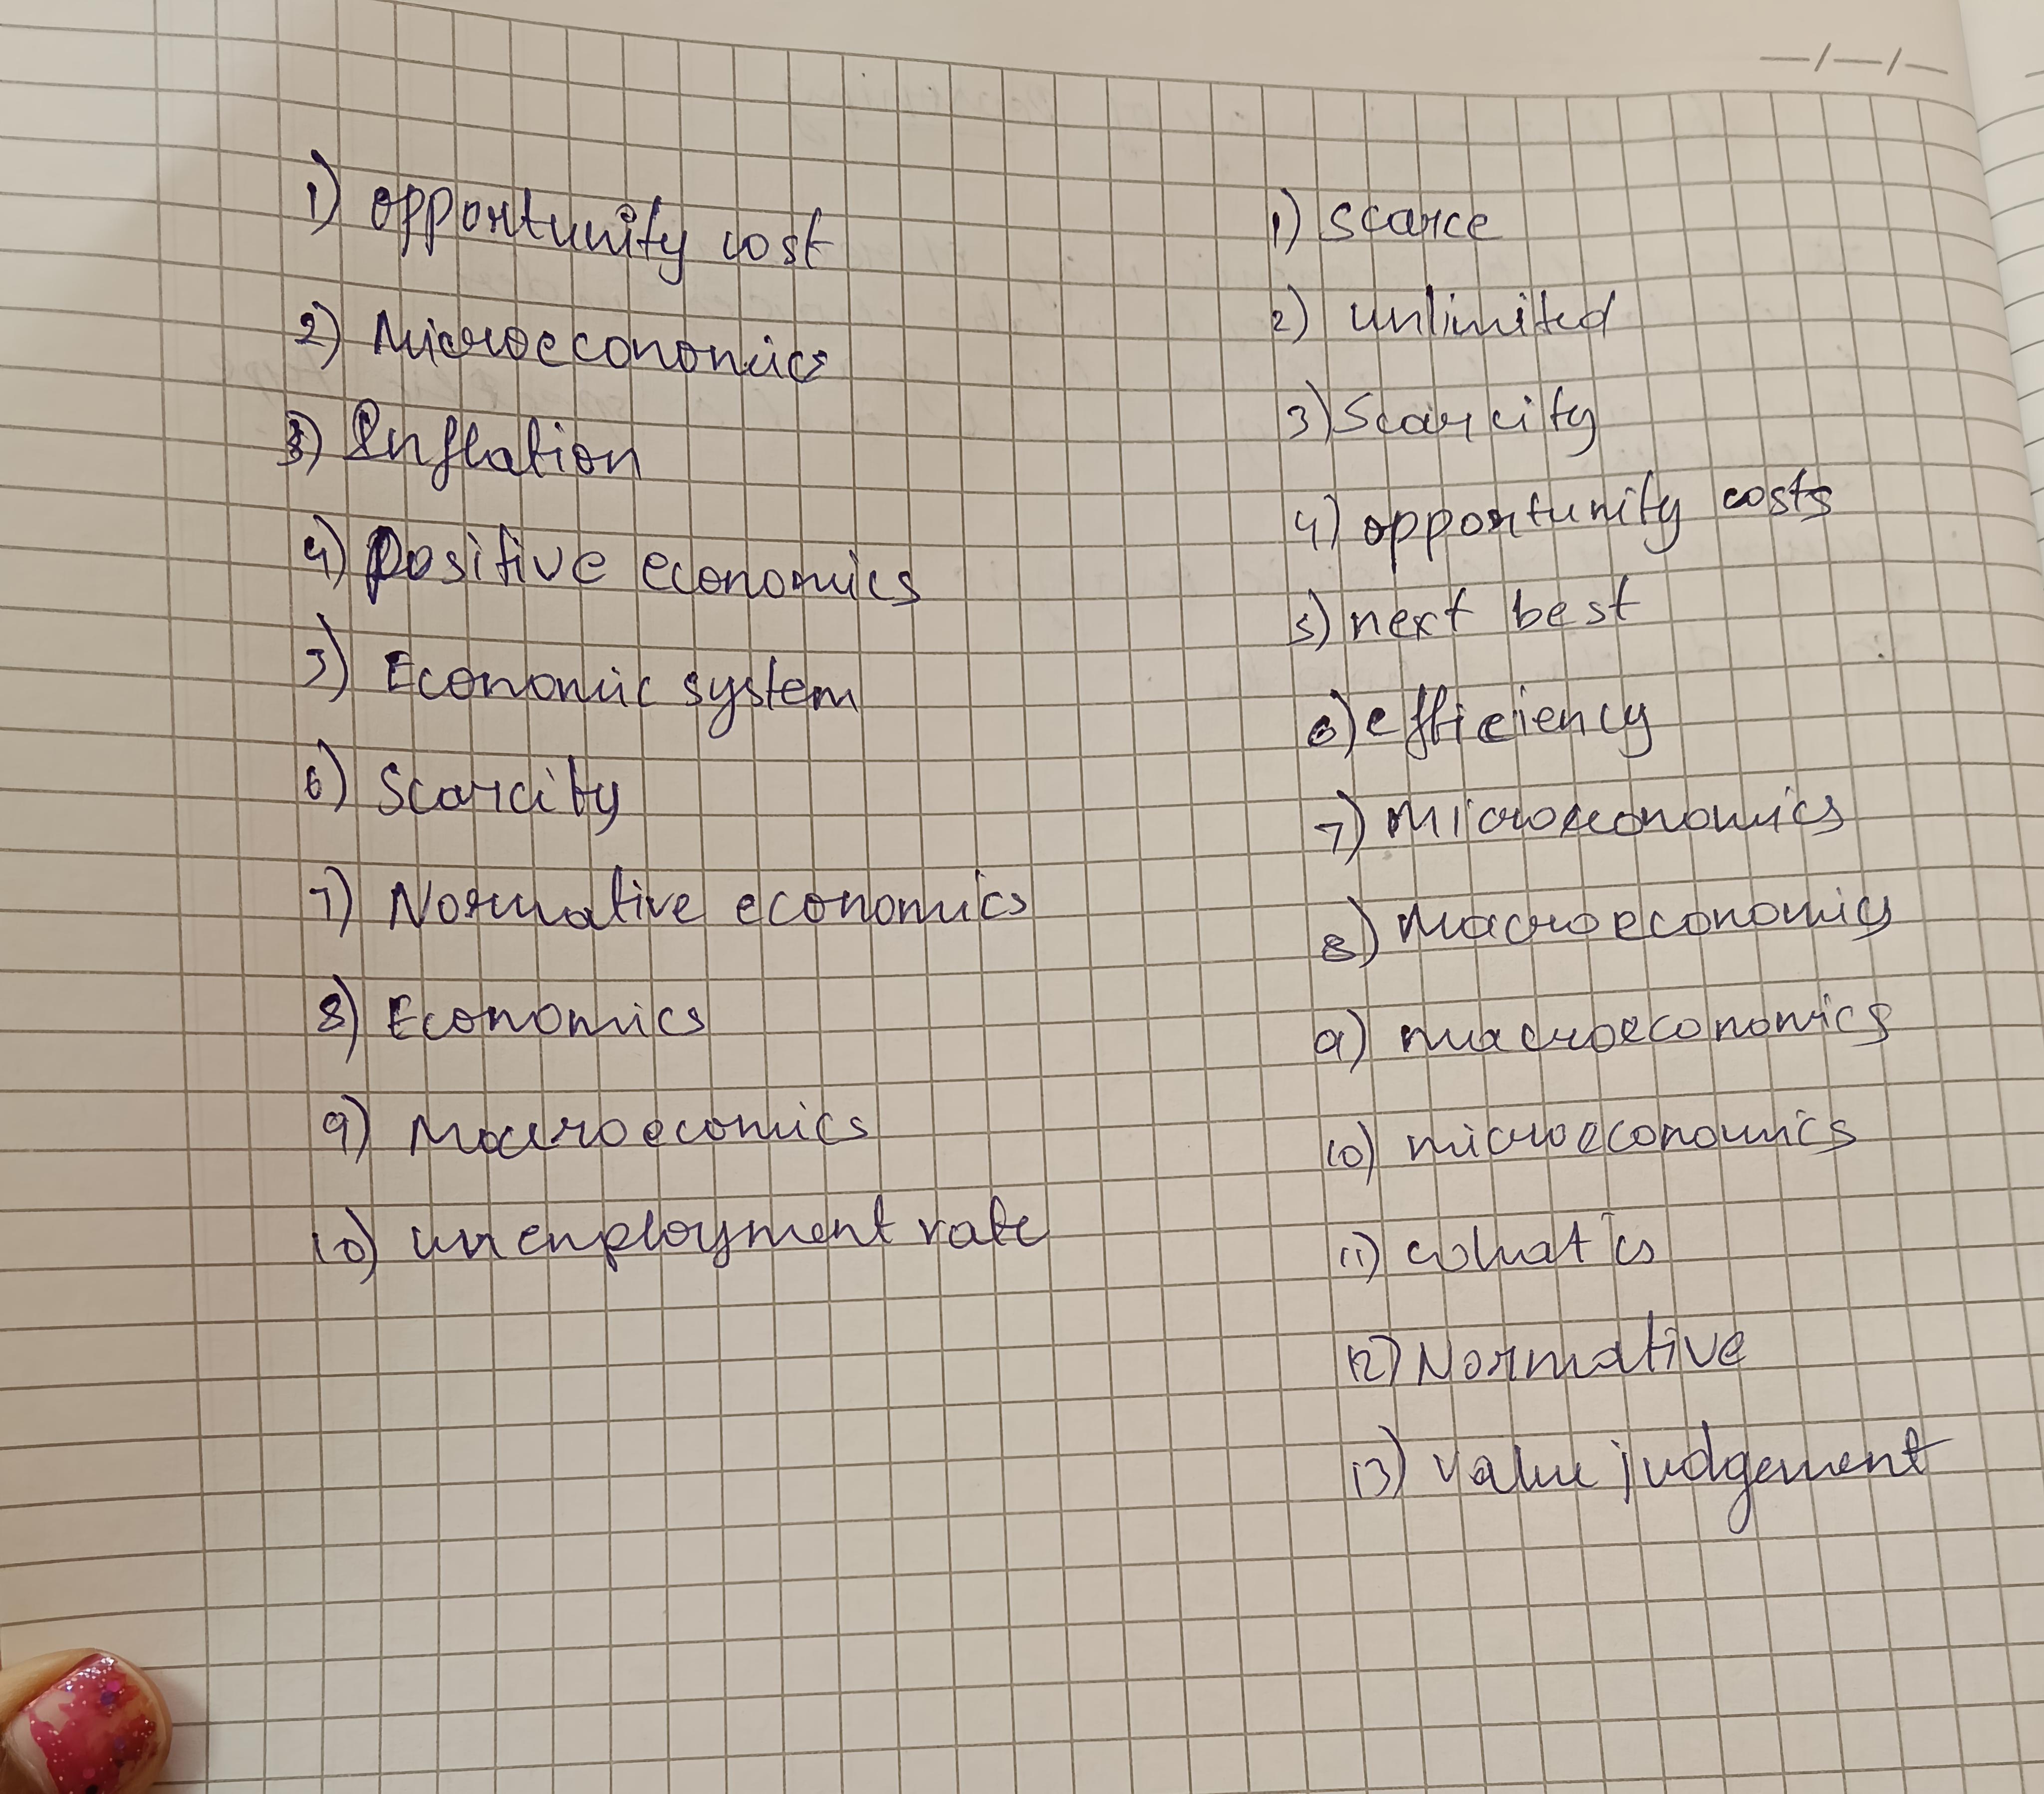 1) opportunity cost
2) Microeconomics
3) Inflation
4) Positive economics
5) Economic system
6) Scarcity
7) Normative economics
8) Economics
9) Macroecomics
10) unenployment rate
1) scarce
2) unlimited
3) Scarcity
4) opportunity costs
5) next best
6) efficiency
7) Microeconomics
8) Macroeconomics
9) macroeconomics
10) microeconomics
11) what is
12) Normative
13) value judgement